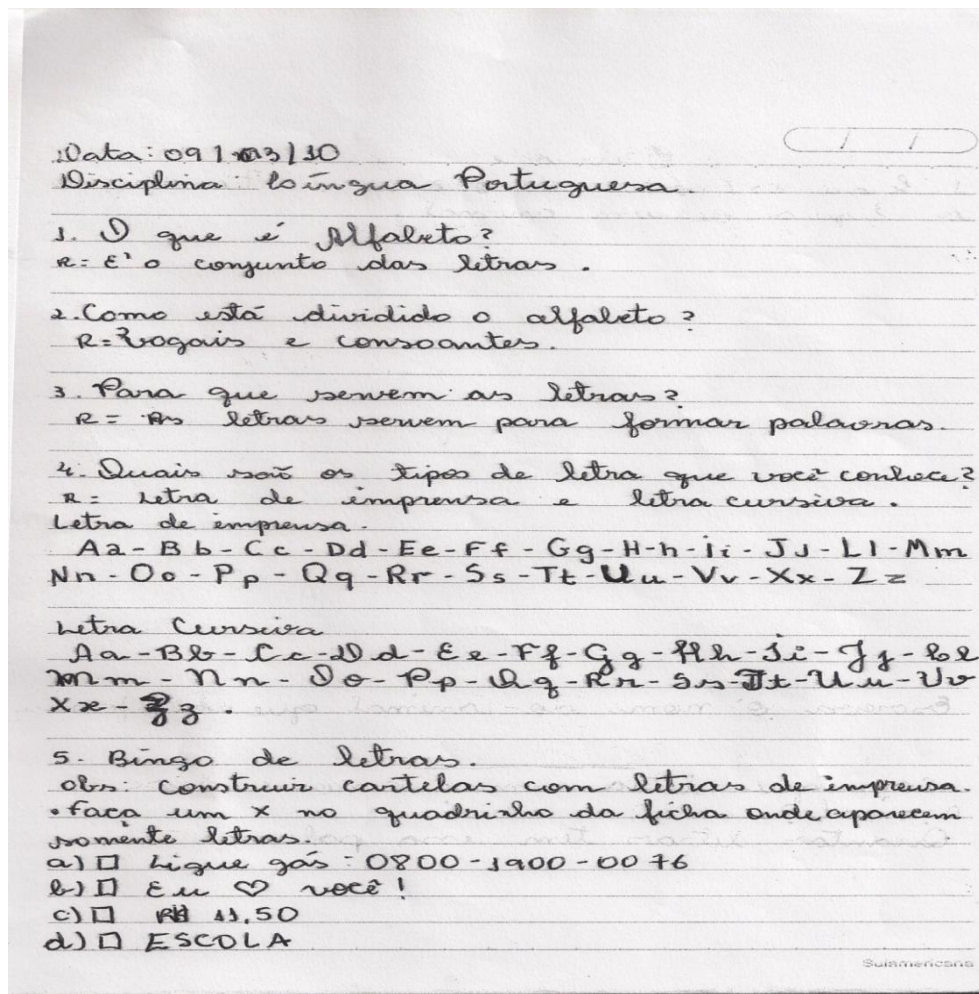 Data: 09/03/10
Disciplina: Língua Portuguesa.
1. O que é Alfabeto?
R= É o conjunto das letras.
2. Como está dividido o alfabeto?
R= Vogais e consoantes.
3. Para que servem as letras?
R= As letras servem para formar palavras.
4. Quais são os tipos de letra que você conhece?
R= Letra de imprensa e letra cursiva.
Letra de imprensa.
Aa - Bb - Cc - Dd - Ee - Ff - Gg - H-h - Ii - Jj - Ll - Mm
Nn - Oo - Pp - Qq - Rr - Ss - Tt - Uu - Vv - Xx - Zz
Letra Cursiva
Aa - Bb - Cc - Dd - Ee - Ff - Gg - Hh - Ii - Jj - Ll
Mm - Nn - Oo - Pp - Qq - Rr - Ss - Tt - Uu - Vv
Xx - Zz.
5. Bingo de letras.
obs: Construir cartelas com letras de imprensa.
• Faça um x no quadrinho da ficha onde aparecem
somente letras.
a) □ Ligue gás: 0800-1900-0076
b) □ Eu ♡ você!
c) □ R$ 11,50
d) □ ESCOLA
Sulamericana